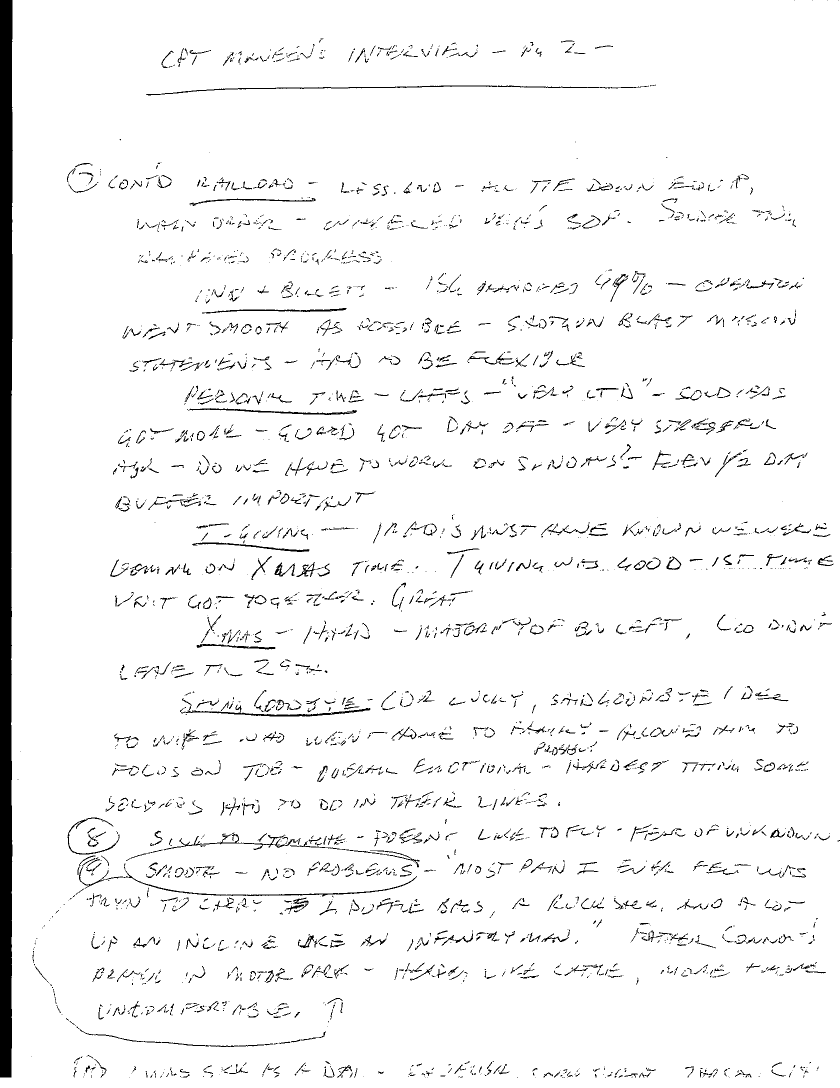 CPT MAVEEN'S INTERVIEW - Pg 2 -
7 CONT'D RAILLOAD - LESS. END - ALL TIE DOWN EQUIP,
ORDER - VEH'S SOP. SOLDIER
PROGRESS.
+ BILLETS - 1SG HANDLED 99% - OPERATION
WENT SMOOTH AS POSSIBLE - SHOTGUN BLAST MISSION
STATEMENTS - HAD TO BE FLEXIBLE
PERSONAL TIME - - "VERY LTD" - SOLDIERS
GOT MORE - GUARD GOT DAY OFF - VERY STRESSFUL
ASK - DO WE HAVE TO WORK ON SUNDAYS? - EVEN 1/2 DAY
BUFFER IMPORTANT
T-GIVING - IRAQI'S MUST HAVE KNOWN WE WERE
COMING ON XMAS TIME. TGIVING WAS GOOD - 1ST TIME
UNIT GOT TOGETHER. GREAT
XMAS - HARD - MAJORITY OF BN LEFT, CO DIDN'T
LEAVE TIL 29TH.
SAYING GOODBYE - CDR LUCKY, SAID GOODBYE 1 DEC
TO WIFE WHO WENT HOME TO FAMILY - ALLOWED HIM TO
FOCUS ON JOB - OVERALL EMOTIONAL - PROBABLY HARDEST THING SOME
SOLDIERS HAD TO DO IN THEIR LIVES.
8 SICK TO STOMACHE - DOESN'T LIKE TO FLY - FEAR OF UNKNOWN.
9 SMOOTH - NO PROBLEMS - "MOST PAIN I EVER FELT WAS
TRYN' TO CARRY 2 DUFFLE BAGS, A RUCKSACK, AND A LOT
UP AN INCLINE LIKE AN INFANTRYMAN." FATHER CONNOR'S
IN MOTOR PARK - HERDED LIKE CATTLE, MORE + MORE
UNCOMFORTABLE. ↑
I WAS SICK AS A DOG -